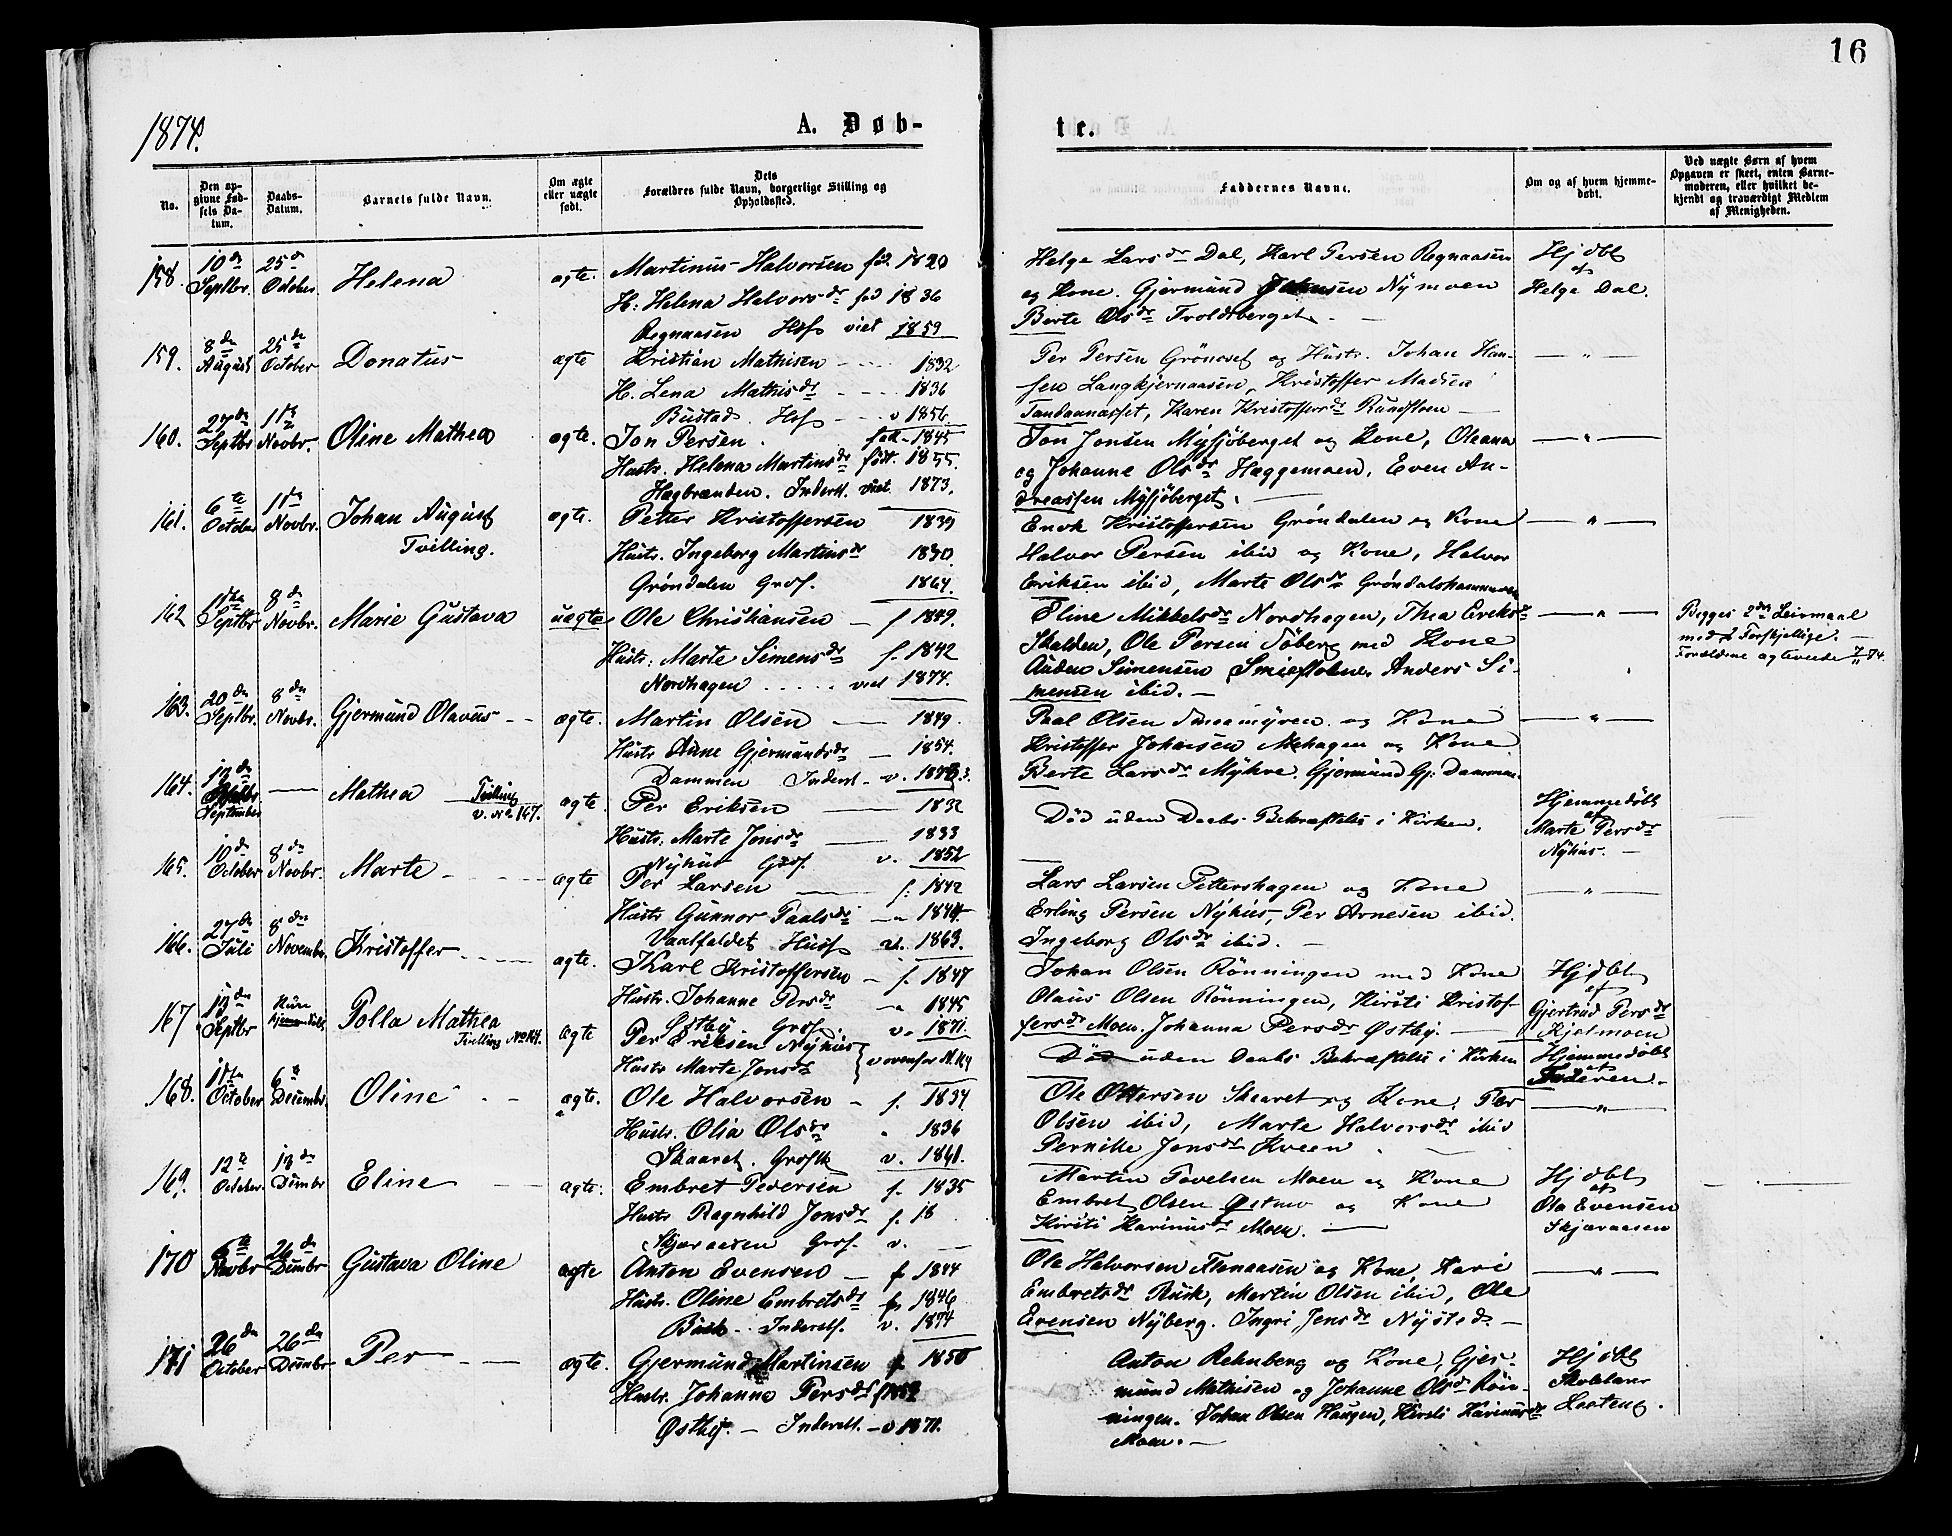 16
1874.
A. Døb-
te.
No.
Den op-
givne Fød-
sels Da-
tum.
Daabs-
Datum.
Barnets fulde Navn.
Om ægte
eller uægte
født.
Dets
Forældres fulde Navn, borgerlige Stilling og
Opholdssted.
Faddernes Navne.
Om og af hvem hjemme-
døbt.
Ved uægte Børn af hvem
Opgaven er skeet, enten Barne-
moderen, eller hvilket be-
kjendt og troværdigt Medlem
af Menigheden.
158. 10de Septbr. 25de October. Helena ægte. Martinus Halvorsen fød. 1820
H. Helena Halvorsdr fød 1836
Regnaasen Hsf viet 1859
Helge Larsdr Dal, Karl Persen Regnaasen
og Kone. Gjermund Johnsen Nymoen
Berte Olsdr Troldsberget. —
Hjdbt
af
Helge Dal.
159. 8de August 25de October Donatus ægte Kristian Mathisen 1832
H. Lena Mathisdr 1836
Bustad Hsf v 1856.
Per Persen Grönoset og Hustr. Johan Han-
sen Langkjernaasen, Kristoffer Madsen
Tandaneasset, Karen Kristoffersdr Rundfloen —
— " —
160. 27de Septbr 11te Novbr. Oline Mathea ægte. Jon Persen. fød. 1845
Hustr. Helena Martinsdr født. 1855.
Hagbrænden. Inderst. viet 1873.
Jon Jonsen Mysjöberget og Kone, Oleana
og Johanne Olsdr Haggemoen. Even An-
dreassen Mysjöberget.
— " —
161. 6te October 11te Novbr. Johan August
Tvilling.
ægte. Petter Kristoffersen 1839
Hustr. Ingeborg Martinsdr 1830.
Gröndalen Grdf. 1864.
Erik Kristoffersen Gröndalen og Kone
Halvor Persen ibid og Kone, Halvor
Eriksen ibid, Marte Olsdr Gröndalshammeren
— " —
162 Septbr. 8de Novbr. Marie Gustava uægte Ole Christiansen — f 1849.
Hustr: Marte Simensdr f. 1842
Nordhagen viet 1874.
Eline Mikkelsdr Nordhagen, Thea Eriksdr
Skalden, Ole Persen Söberg med Kone
Auden Simensen Anders Si-
mensen ibid. —
— " —
Begges 2det Leirmaal
med 2 Forskjellige. —
Forældrene ægteviede 7/11 74.
163. 20de Septbr. 8de Novbr. Gjermund Olavus ægte. Martin Olsen — 1849.
Hustr Anne Gjermundsdr — 1854.
Dammen Inderst v. 1873.
Paal Olsen Smaamyren og Kone
Kristoffer Johnsen Mehagen og Kone
Berte Larsdr Myhre. Gjermund Gj. Dammen
— " —
164. 13de September — Mathea Tvilling
v. No 167.
ægte. Per Eriksen — 1832
Hustr. Marte Jonsdr — 1833
Nyhus Grdf. v. 1852
Död uden Daabs Bekræftelse i Kirken.
Hjemmedöbt
af
Marte Persdr
Nyhus. —
165. 10de October 8de Novbr. Marte ægte Per Larsen — f. 1842
Hustr Gunnor Paalsdr — 1844.
Vaalfaldet Husf v. 1863.
Lars Larsen Pettershagen og Kone
Erling Persen Nyhus, Per Arnesen ibid.
Ingeborg Olsdr ibid. —
— " —
166. 27de Juli 8de Novembr. Kristoffer ægte. Karl Kristoffersen — f. 1847
Hustr. Johanne Persdr 1845
Östby. Grdf v. 1871.
Johan Olsen Rönningen med Kone
Olaus Olsen Rönningen, Kirsti Kristof-
fersdr Moen. Johanna Persdr Östby. —
Hjdbt
af
Gjertrud Persdr
Kjölmoen
167 13de Septbr Kun hjemmedöbt Polla Mathea
Tvilling No 164.
ægte Per Eriksen Nyhus
Hustr Marte Jonsdr } v ovenfor N. 164
Död uden Daabs Bekræftelse i Kirken
Hjemmedöbt
af
Faderen.
168. 11te October 6te Decembr. Oline ægte. Ole Halvorsen f. 1834
Hustr. Olia Olsdr " 1836
Skaaret. Grdf v. 1861.
Ole Ottersen Skaaret og Kone, Per
Olsen ibid, Marte Halvorsdr ibid
Pernille Jonsdr Kveen.
— " —
169. 12te October. 13de Dcmbr Eline ægte. Embret Pedersen f. 1835
Hustr Ragnhild Jonsdr f. 18
Skjæraasen Grdf. v. —
Martin Tovelsen Moen og Kone
Embret Olsen Östmo og Kone
Kirsti Karinusdr Moen. —
Hjdbt
af
Ola Evensen
Skjæraasen
170 6te Novbr 26de Dcmbr Gustava Oline ægte Anton Evensen — f 1844
Hustr. Oline Embretsdr f. 1846
Inderst. v. 1874
Ole Halvorsen Flenaasen og Kone, Kari
Embretsdr Rusk, Martin Olsen ibid, Ole
Evensen Nyberg. Ingri Jensdr Nysted. —
— " —
171 26de October 26de Dcmbr Per ægte. Gjermund Martinsen f 1850
Hustr. Johanne Persdr f
Östby. — Inderst. — v 1871.
Anton Rehnberg og Kone, Gjer-
mund Mathisen og Johanne Olsdr Rön-
ningen. Johan Olsen Haugen, Kirsti Karinusdr
Moen. —
Hjdbt
Skolelærer